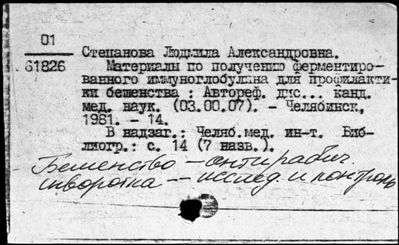 01
61826
Степанова Людмила Александровна.
Материалы по получению ферментиро-
ванного иммуноглобулина для профилакти-
ки бешенства : Автореф. дис... канд.
мед. наук. (03.00.07). - Челябинск,
1981. - 14.
В надзаг.: Челяб.мед. ин-т. Биб-
лиогр.: с. 14 (7 назв.).
Бешенство – антирабич.
сыворотка – исслед. и контроль